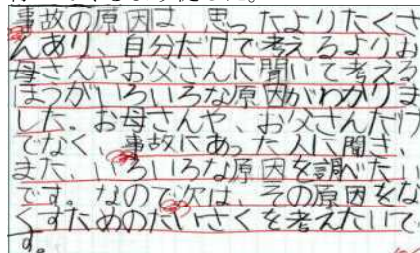 事故の原因は、思ったよりたくさ
んあり、自分だけで考えるよりお
母さんやお父さんに聞いて考える
ほうがいろいろな原因がわかりま
した。お母さんや、お父さんだけ
でなく、事故にあった人に聞き、
また、いろいろな原因を調べたい
です。なので次は、その原因をな
くすためのたいさくを考えたいで
す。